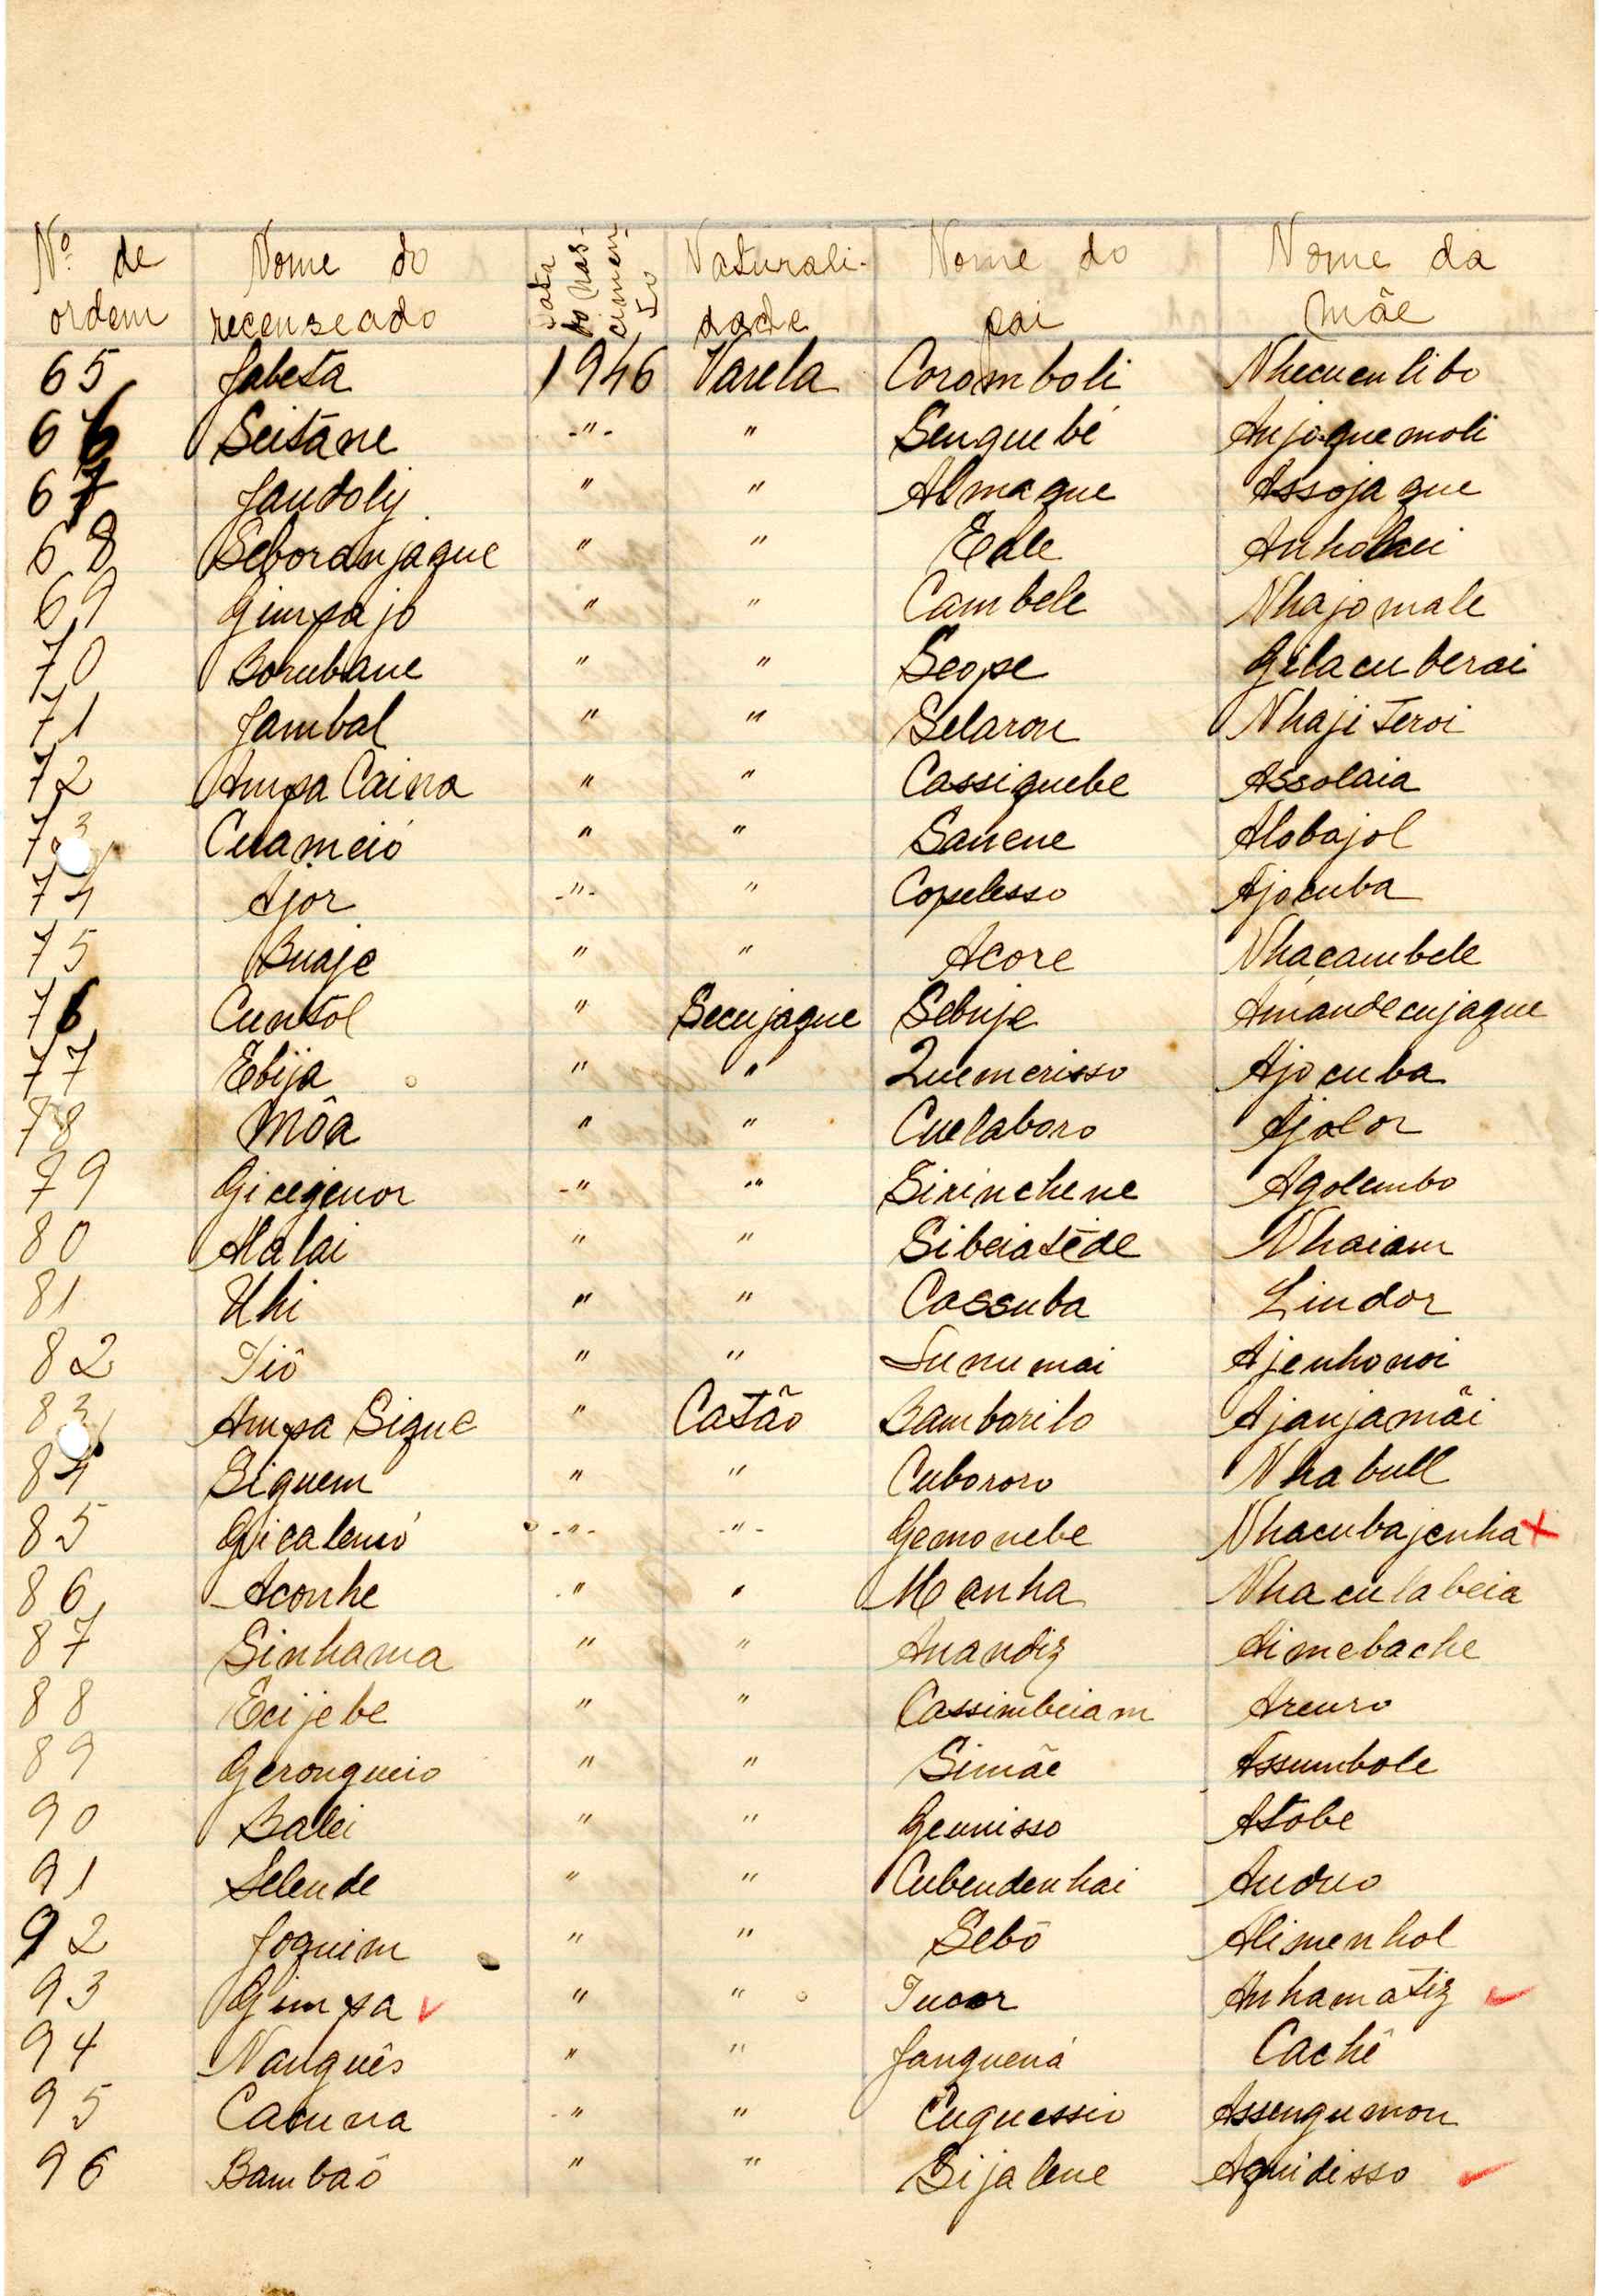 Nº de ordem Nome do recenseado Data do nascimento Naturalidade Nome do pai Nome da Mãe
65 Jabeta 1946 Varela Coromboli Nhecuculibo
66 Seitane -"- " Senguebé Anjoquemoli
67 Jandoly " " Almaque Assojaque
68 Seboranjaque " " Eale Anholai
69 Gimpajo " " Cambele Nhajomale
70 Borubane " " Seope Gilacuberai
71 Jambal " " Selaron Nhajiteroi
72 Ampa Caina " " Cassiguebe Assolaia
73 Cuameió " " Sanene Alobajol
74 Ajor -"- " Copelesso Ajocuba
75 Buaje " " Acore Nhacambele
76 Cuntol " Secujaque Sebuje Amandecujaque
77 Ebija " " Quemerisso Ajocuba
78 Môa " " Cuelaboro Ajolor
79 Gicegenor -" " Sirinchene Agolembo
80 Alalai " " Sibeiatéde Nhaiam
81 Uhi " " Cassuba Lindor
82 Tiô " " Sunumai Ajenhonoi
83 Ampa Sigue " Catão Bamborilo Ajanjamãi
84 Siguem " " Cubororo Nhabull
85 Gicalemó -"- -"- Gemonebe Nhacubajenha
86 Aconhe " " Manha Nhaculabeia
87 Sinhama " " Anandiz Aimebache
88 Ecijebe " " Cassimbeiam Areuro
89 Gerongueio " " Simãe Assumbole
90 Balei " " Geunisso Atobe
91 Selende " " Cubendenhai Anduo
92 Joquim " " Sebô Alimenhol
93 Gimpa " " Tucor Anhamatiz
94 Nanguês " " Janguená Cachê
95 Cacuna " " Cuguessio Assengumon
96 Bambaô " " Sijalene Aquidisso